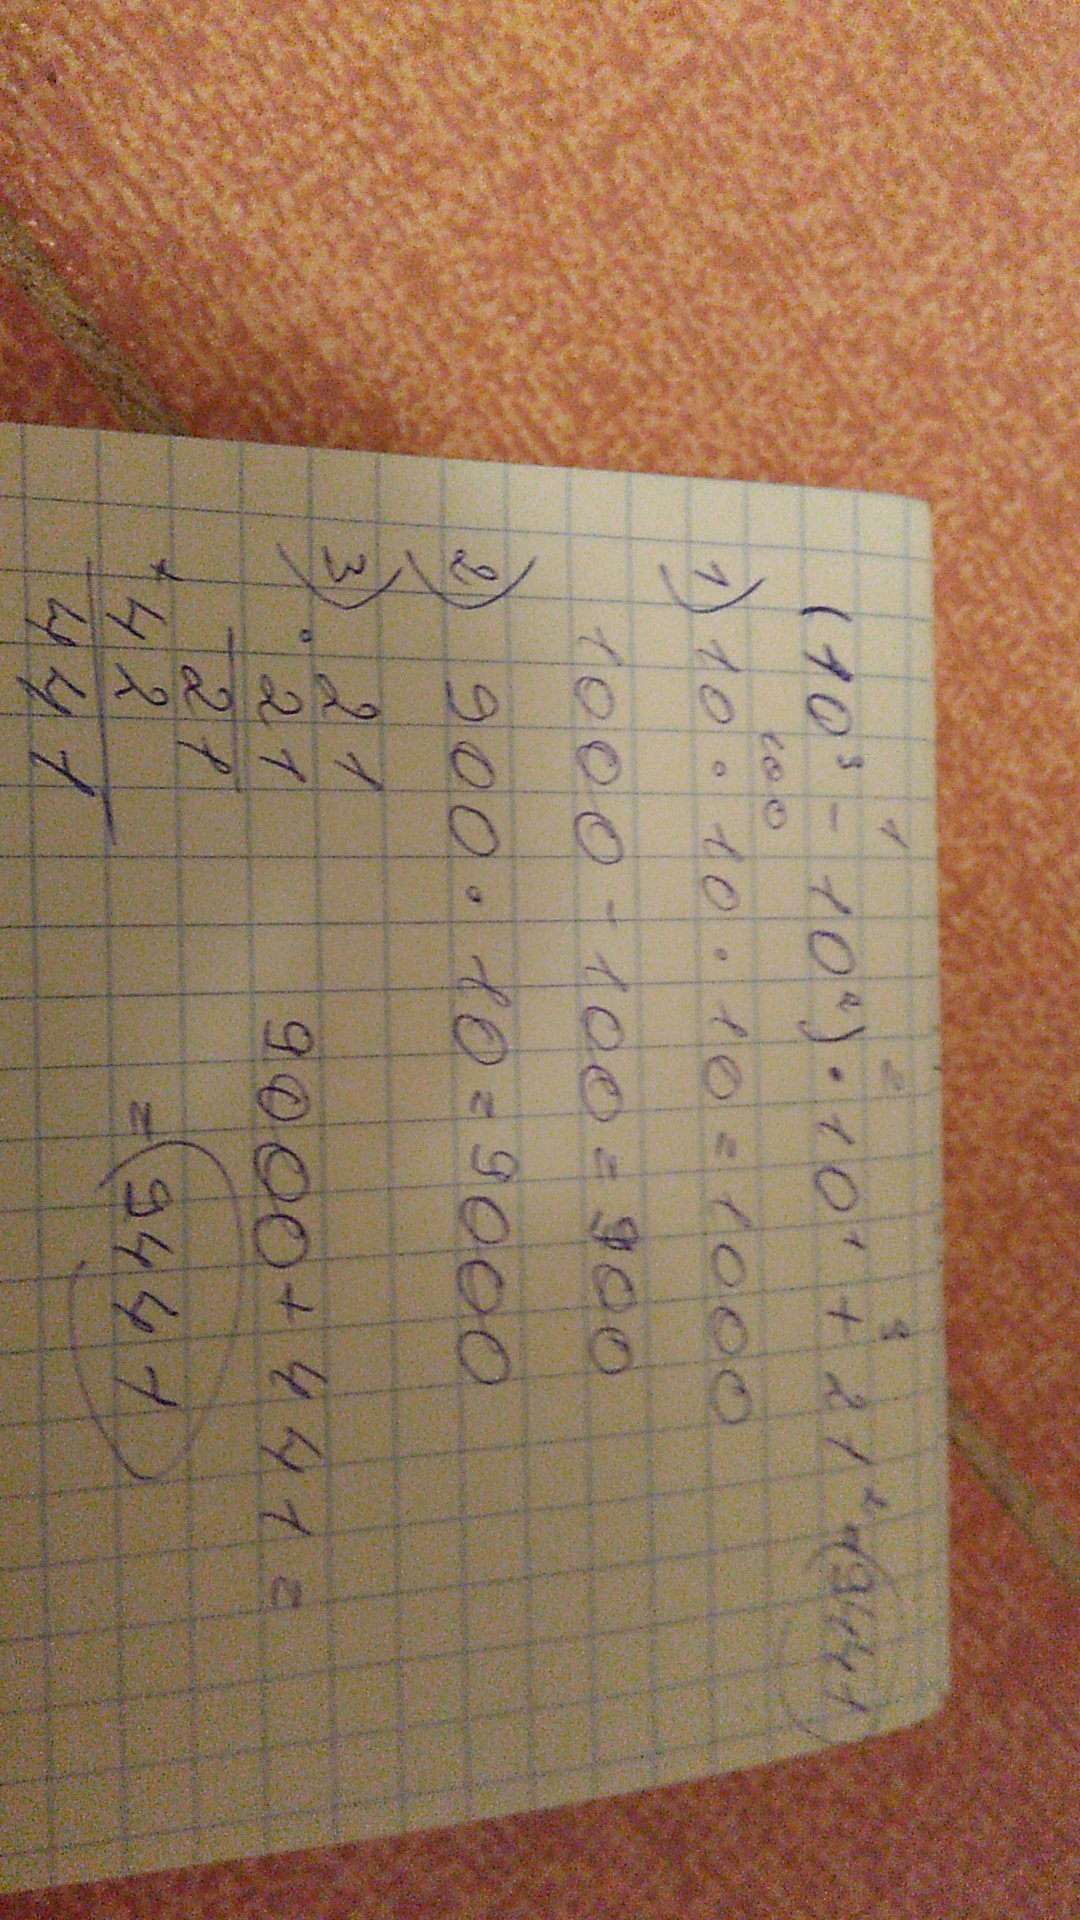 1 2 4
(10³ - 10²) · 10¹ + 21² = 9441
100
1) 10 · 10 · 10 = 1000
1000 - 100 = 900
2) 900 · 10 = 9000
3) · 21
21
21
+ 42
441
9000 + 441 =
= 9441